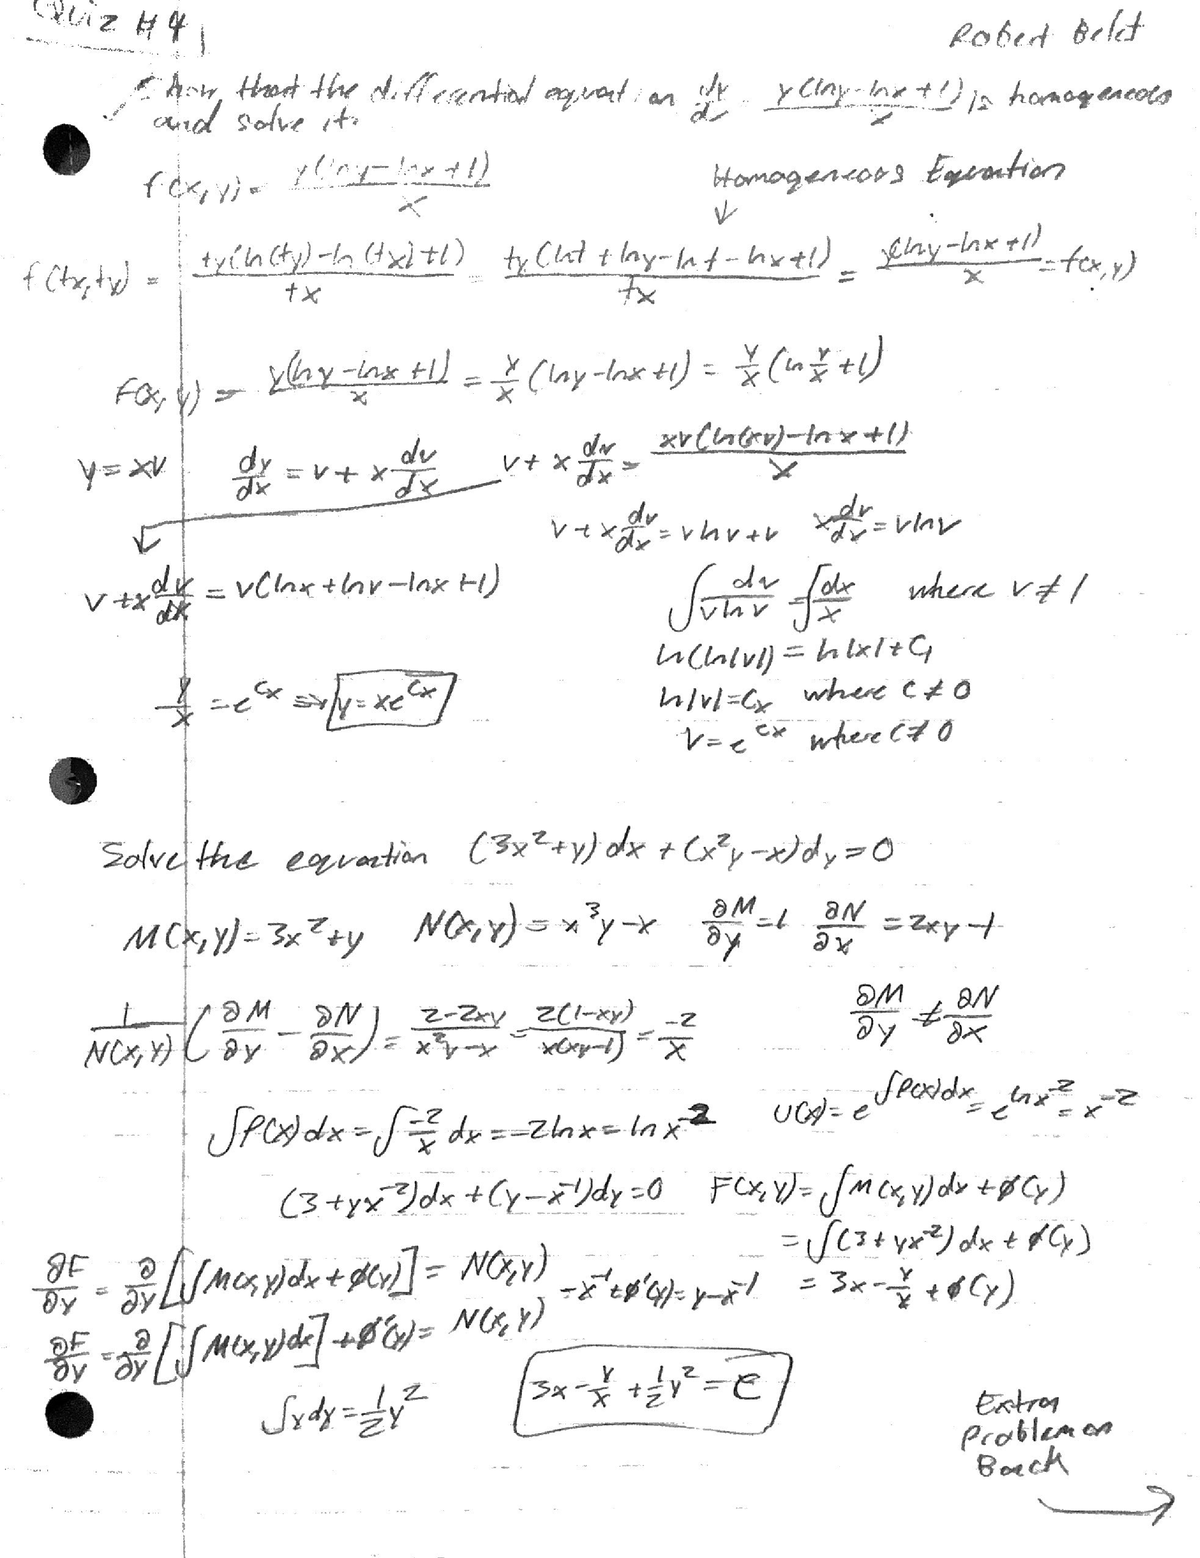 Quiz #4
Robert Belet
Show that the differential equation dy/dx = y(lny-lnx+1)/x is homogeneous
and solve it.
f(x,y) = y(lny-lnx+1)/x
Homogeneous Equation
↓
f(tx,ty) = ty(ln(ty)-ln(tx)+1)/tx = ty(lnt+lny-lnt-lnx+1)/tx = y(lny-lnx+1)/x = f(x,y)
F(x,y) = y(lny-lnx+1)/x = y/x (lny-lnx+1) = y/x (ln y/x +1)
y=xv dy/dx = v+x dv/dx v+x dv/dx = xv(ln(xv)-lnx+1)/x
v+x dv/dx = vlnv+v x dv/dx = vlnv
v+x dv/dx = v(lnx+lnv-lnx+1)
∫ dv/vlnv = ∫ dx/x where v≠1
ln(ln|v|) = ln|x|+C₁
y/x = e^cx ⇒ y=xe^cx
ln|v|=Cx where C≠0
v=e^cx where C≠0
Solve the equation (3x²+y)dx+(x²y-x)dy=0
M(x,y)=3x²+y N(x,y)=x³y-x ∂M/∂y=1 ∂N/∂x=2xy-1
1/N(x,y) (∂M/∂y - ∂N/∂x) = 2-2xy/x²y-x = 2(1-xy)/x(xy-1) = -2/x
∂M/∂y ≠ ∂N/∂x
∫P(x)dx=∫ -2/x dx=-2lnx=lnx^-2 U(x)=e^∫P(x)dx = e^lnx^-2 = x^-2
(3+yx^-2)dx+(y-x^-1)dy=0 F(x,y)=∫M(x,y)dx+ø(y)
=∫(3+yx^-2)dx+ø(y)
∂F/∂y = ∂/∂y[∫M(x,y)dx+ø(y)] = N(x,y) -x^-1+ø'(y)=y-x^-1 = 3x- y/x +ø(y)
∂F/∂y = ∂/∂y[∫M(x,y)dx]+ø'(y) = N(x,y)
∫ydy = 1/2 y²
3x- y/x + 1/2 y² = C
Extra
Problem on
Back
→